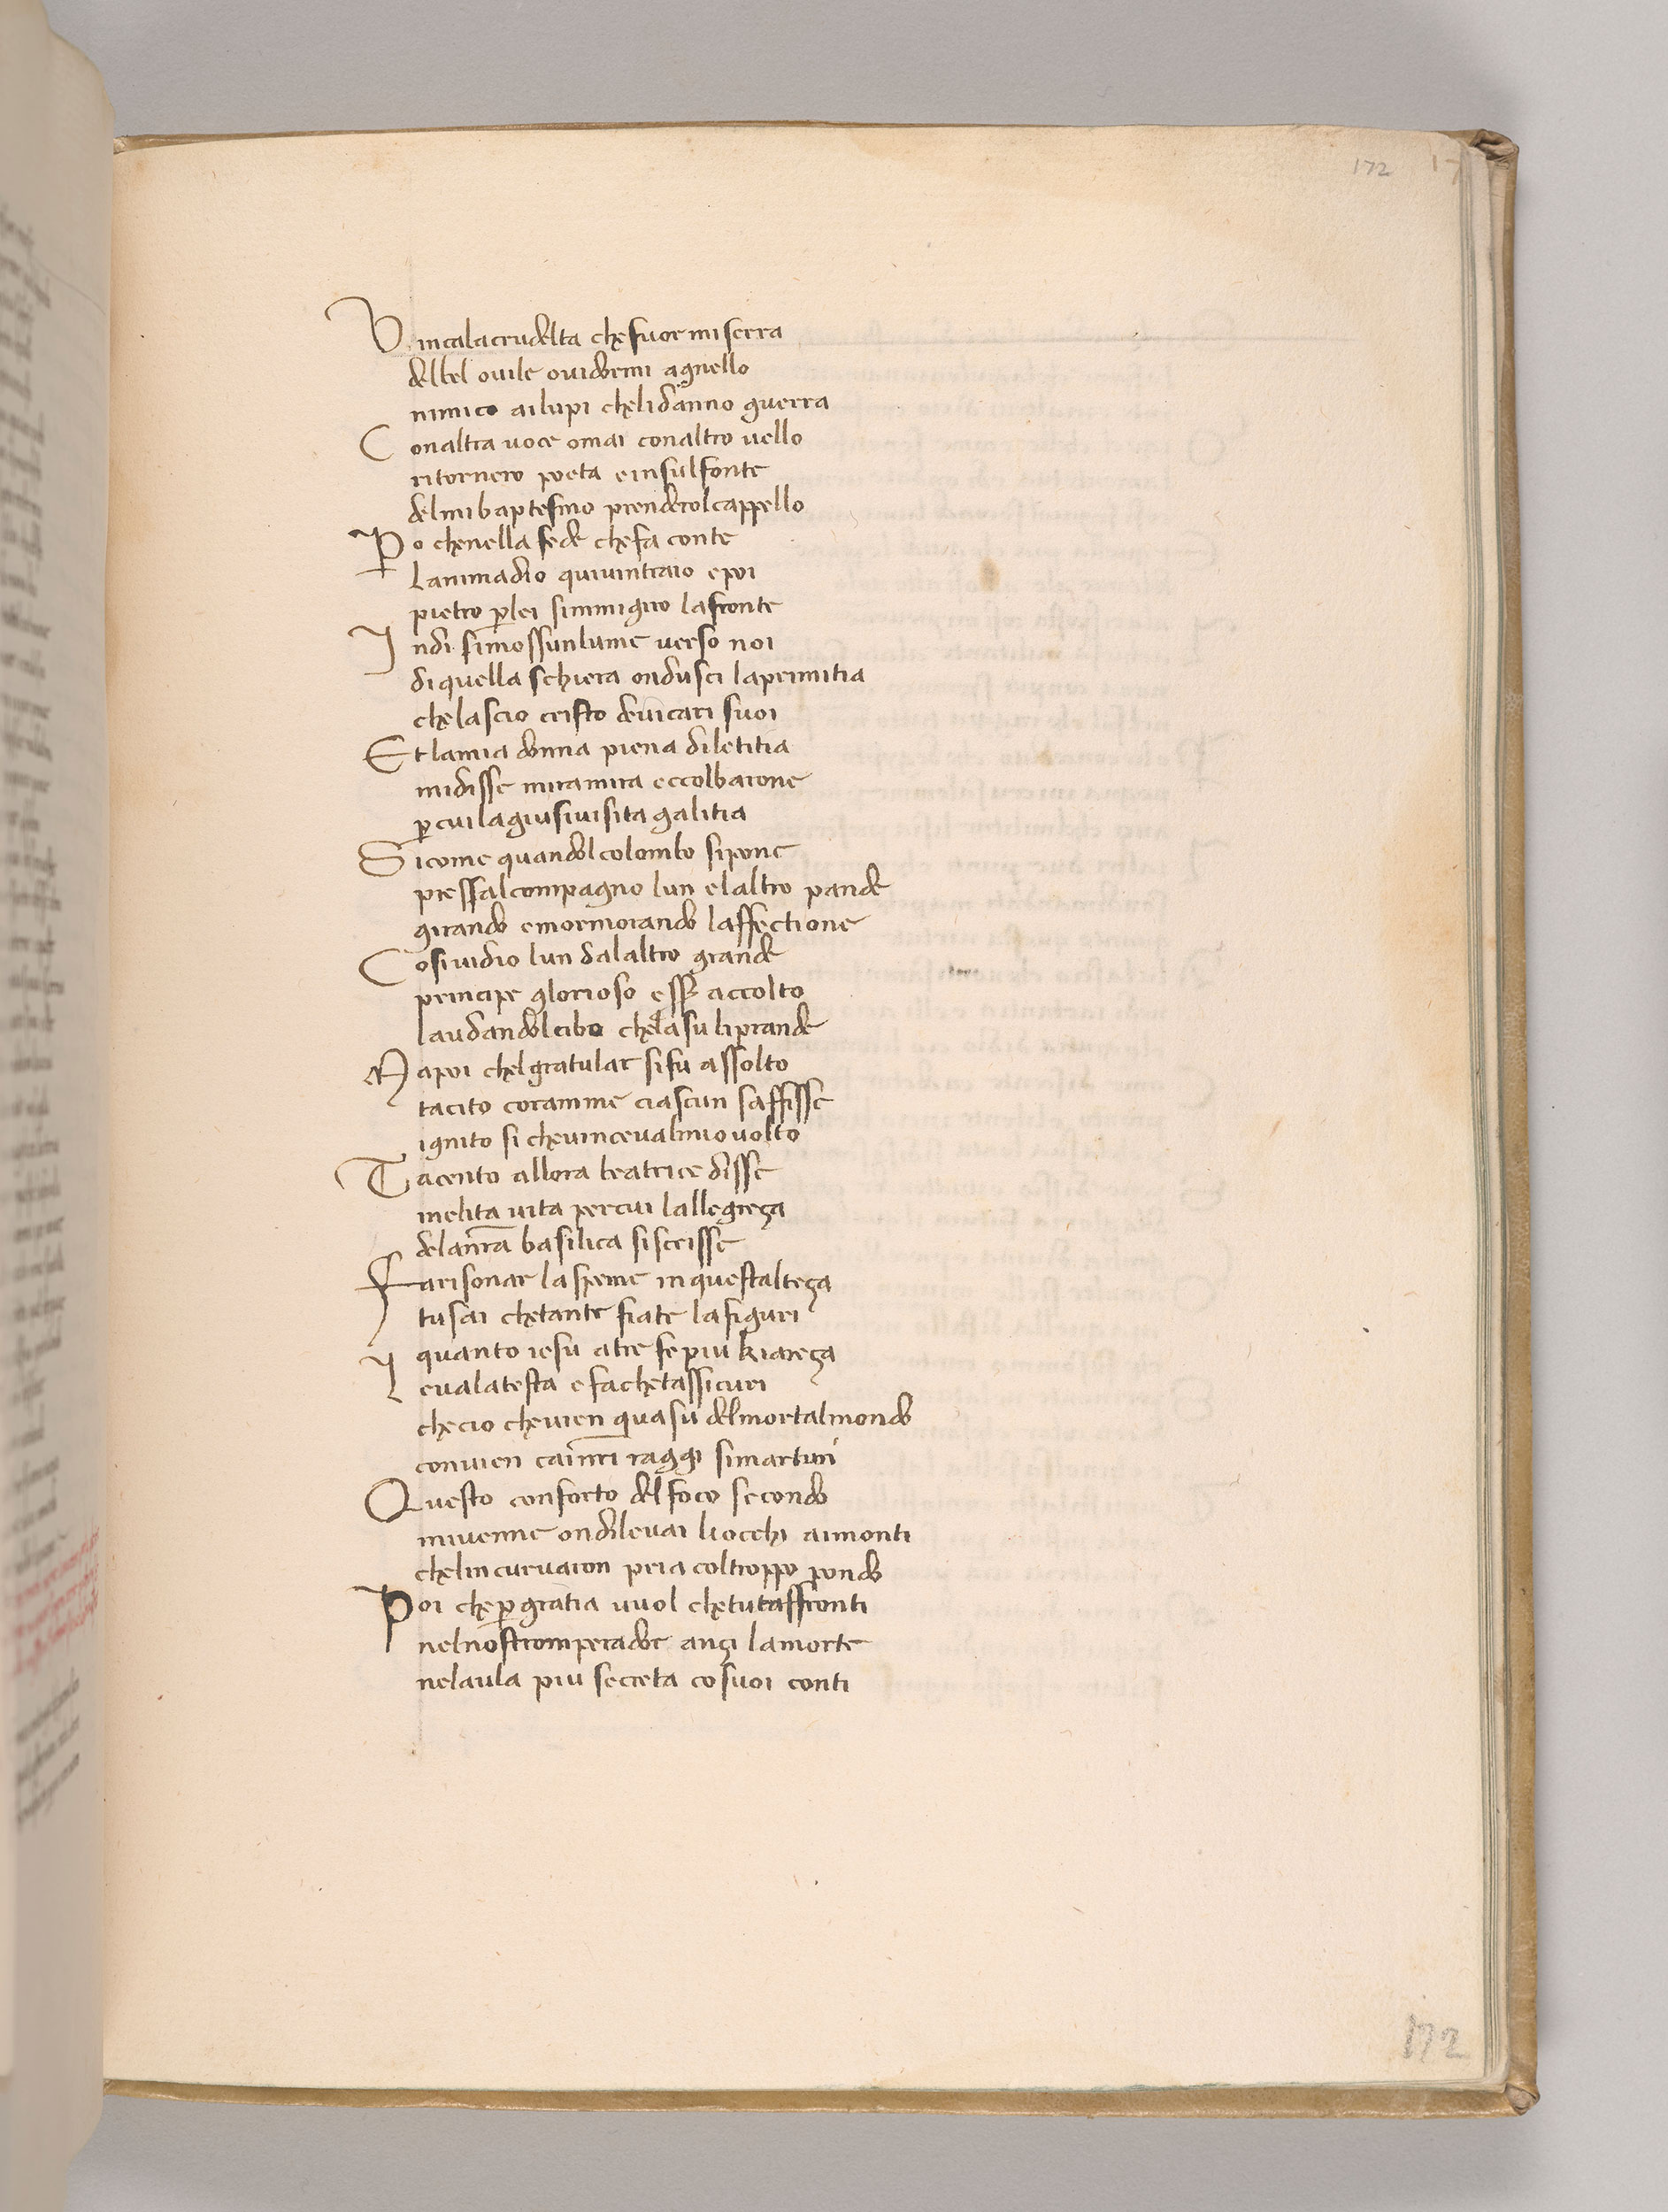 172
Vincalacrudelta che fuor mi serra
delbel ovile ovidormi agnello
nimico ailupi chelidanno guerra
Conaltra voce omai conaltro vello
ritornero poeta einsulfonte
delmi baptesmo prenderolcappello
Po chenella fede chefa conte
Lanimadio quivintraio epoi
pietro plei simmigiro lafronte
Indi simossunlume verso noi
diquella schiera ondusci laprimitia
chelascio cristo devicari suoi
Et lamia donna piena diletitia
midisse miramira eccolbarone
pcuilagiusivisita galitia
Sicome quandolcolombo sipone
pressalcompagno lun elaltro pande
girando emormorando laffectione
Cosividio lun dalaltro grande
principe glorioso essr accolto
laudandolcibo chelasu liprande
Mapoi chelgratular sifu assolto
tacito coramme ciascun saffisse
ignito si chevincevalmiovolto
Tacento allora beatrice disse
inclita vita percui lallegreça
delanra basilica siscrisse
Farisonar laspeme inquestalteça
tusai chetante fiate lafiguri
quanto iesu atre fepiu kiareça
Ievalatesta efachetassicuri
checio chevien quasu delmortalmondo
convien cainri raggi simaturi
Questo conforto delfoco secondo
mivenne ondilevai liocchi aimonti
chelincurvaron pria coltroppo pondo
Poi chepgratia vuol chetutaffronti
nelnostromperadore ançi lamorte
nelaula piu secreta cosuoi conti
172